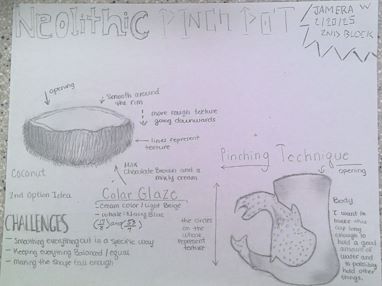 Neolithic PINCH POT
JAMERA W
2/20/25
2ND BLOCK
opening
Smooth around
the rim
more rough texture
going downwards
lines represent
texture
Mix
Chocolate Brown and a
milky cream
Coconut
2nd Option Idea
Color Glaze
- cream color / Light Beige
- whale : Navy Blue
the circles
on the
whale represent
texture
CHALLENGES
- Smoothing everything out in a specific way
- Keeping everything Balanced / equal
- Making the shape tall enough
Pinching Technique
opening
Body
I want to
make this
cup long
enough to
hold a good
amount of
water and
to possibly
hold other
things.